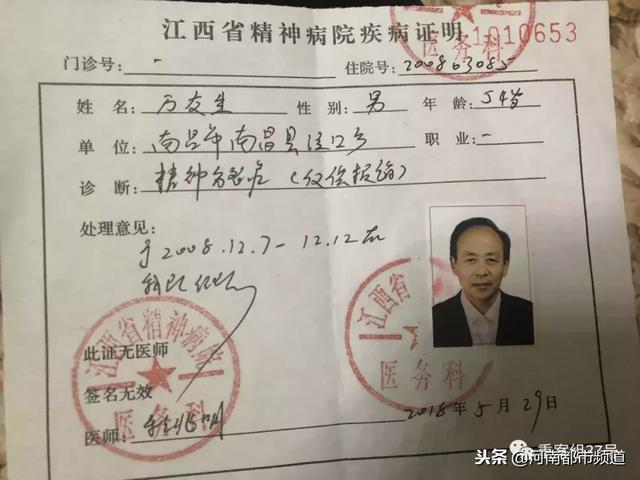 江西省精神病院疾病证明
1010653
门诊号: - 住院号: 200803085
姓名: 万友生 性别: 男 年龄: 54岁
单位: 南昌市南昌县泾口乡 职业: -
诊断: 精神分裂症(仅供报销)
处理意见:
于2008.12.7-12.12在
我院住院
此证无医师
签名无效
医师:
2018年5月29日
江西省精神病院
医务科
江西省
医务科
医务科
重案组37号
头条@河南都市频道